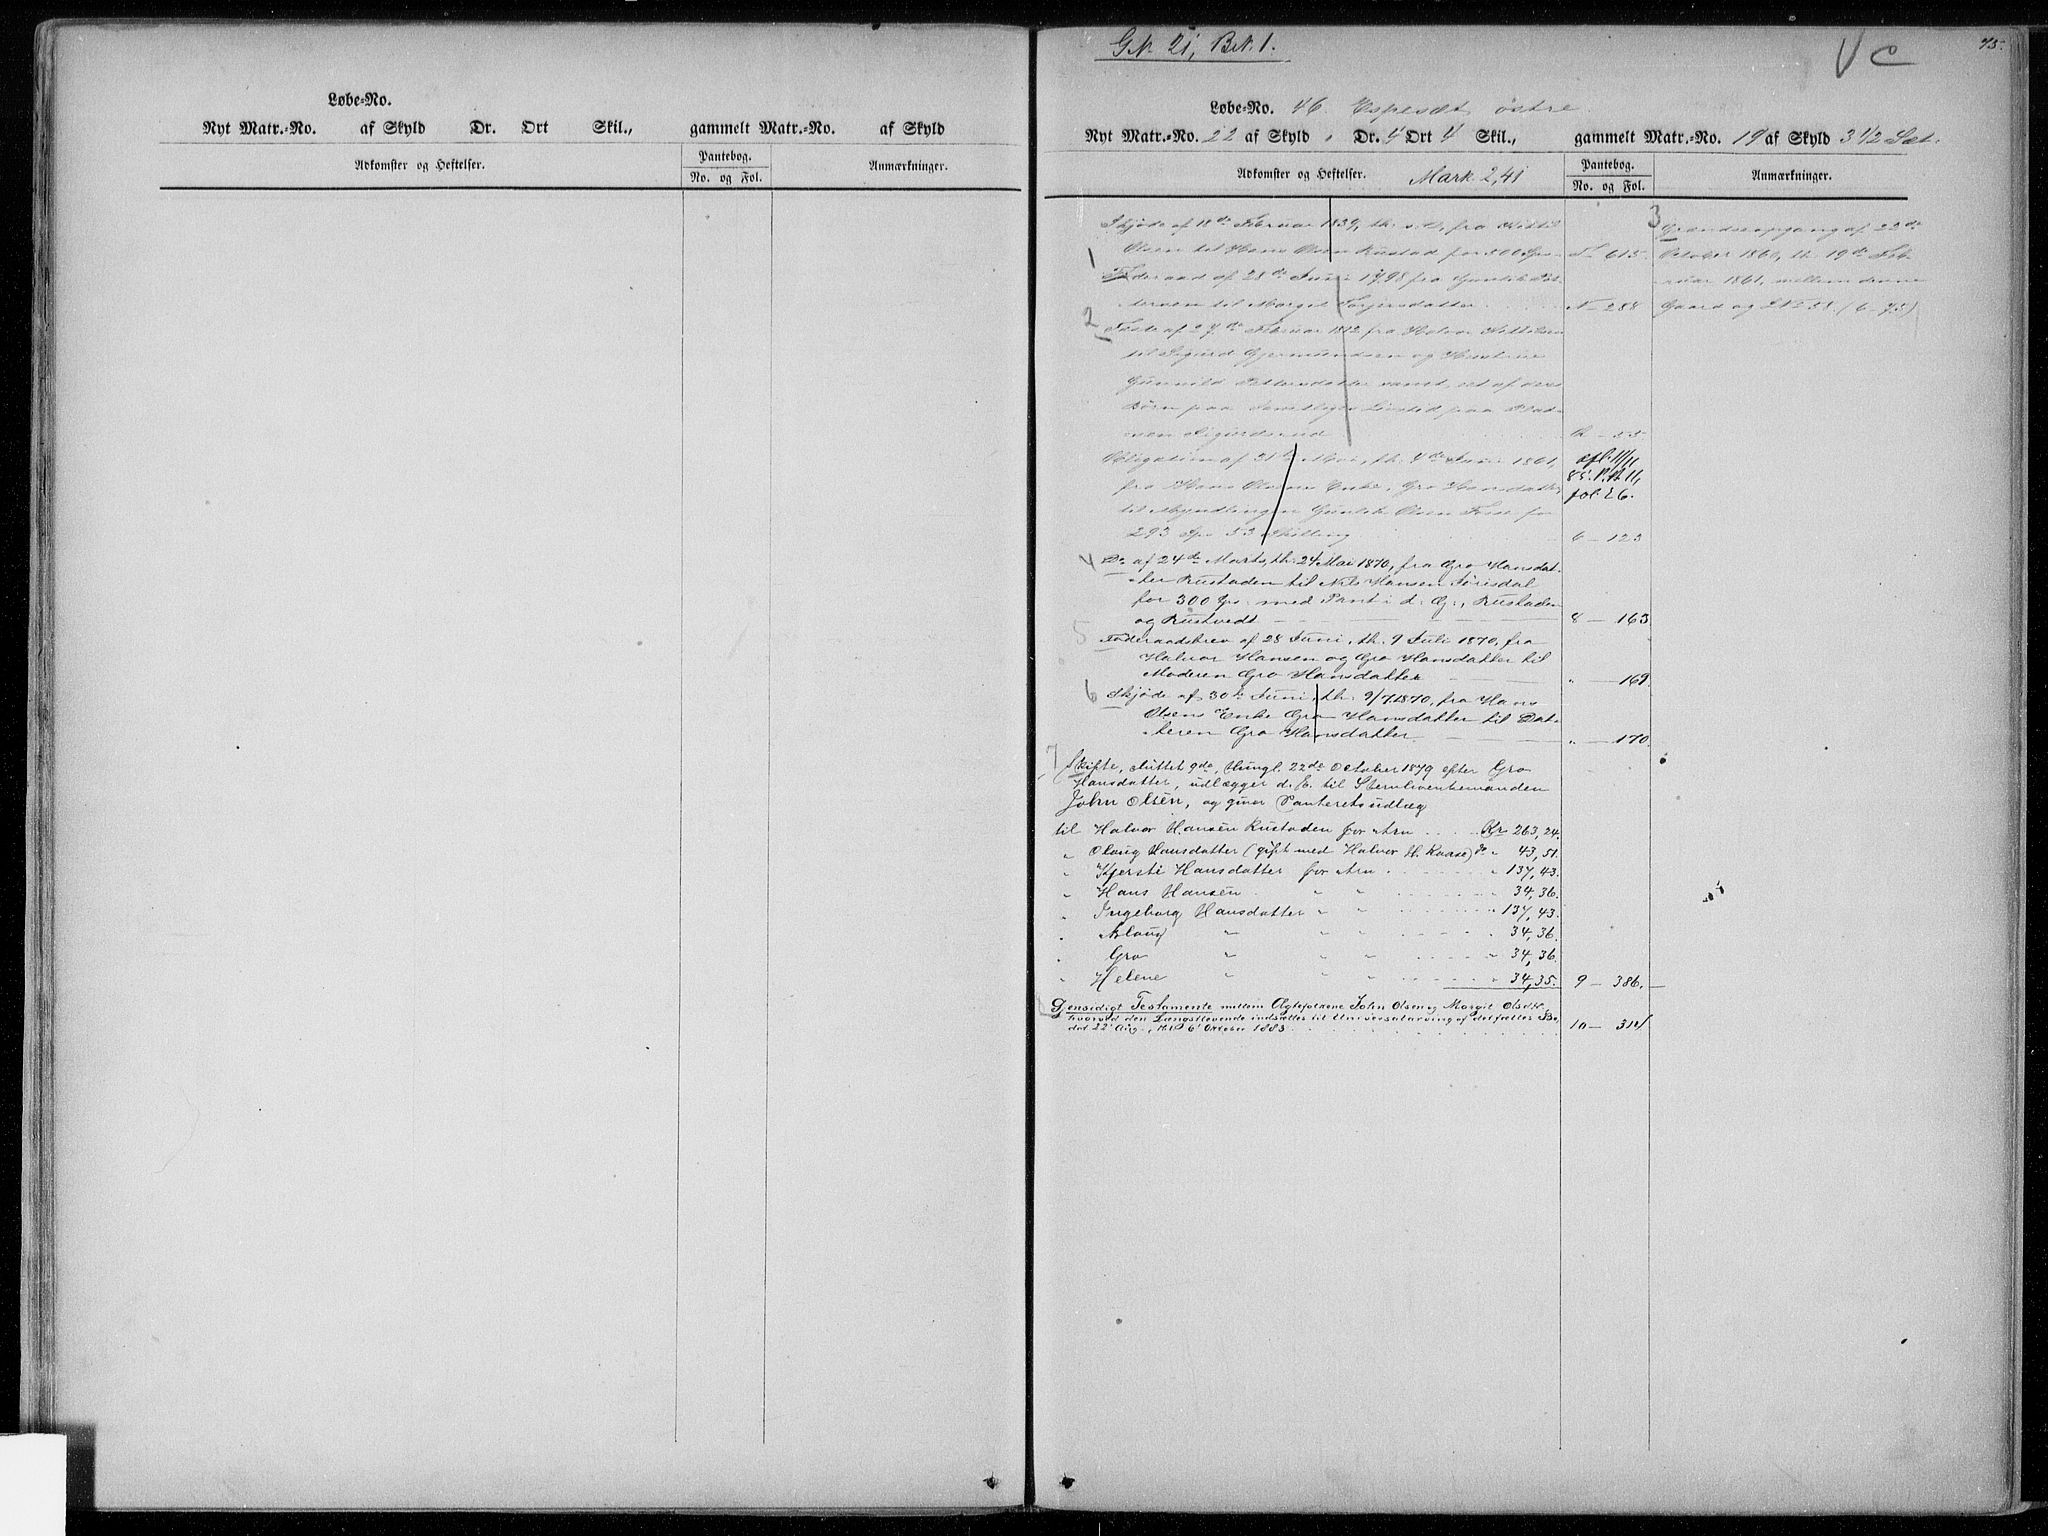 Løbe-No.
Nyt Matr.-No. af Skyld Dr. Ort Skil., gammelt Matr.-No. af Skyld
Adkomster og Heftelser.
Pantebog.
No. og Fol.
Anmærkninger.
75.
G.N. 21, B.N. 1.
Løbe-No. 46. Espeset østre
Nyt Matr.-No. 22 af Skyld " Dr. 4 Ort 4 Skil., gammelt Matr.-No. 19 af Skyld 3 1/2 Set.
Adkomster og Heftelser. Mark 2,41
Pantebog.
No. og Fol.
Anmærkninger.
Skjøde af 18de Februar 1839, th. s. D., fra Kittil
Olsen til Hans Olsen Rustad for 500 Spd. 615
1 Føderaad af 28de Juni 1798 fra Gunlik
til Margit Torjersdatter N - 288
2 Fæste af 27de Februar 1812 fra Halvor Kittilsen
til Sigurd Gjermundsen og Hustrue
Gunnild Pettersdatter samt et af deres
Børn paa Samtliges Livstid paa Plad-
sen Sigurdsrud - 55
Obligation af 31te Mai, th. 4de Juni 1861,
fra Hans Olsens Enke, Gro Hansdatter,
til Myndlingen Gunlik Olsen Fosse for
293 Spd 53 Skilling 6 - 123
afl. 11/11
85. P.B. 11,
fol. 26.
4 Do af 24de Marts, th. 24 Mai 1870, fra Gro Hansdat-
ter Rustaden til Nils Hansen Førisdal
for 300 Spd. med Pant i d. G., Rustaden
og Rustvedt 8 - 163
5 Føderaadsbrev af 28 Juni, th. 9 Juli 1870, fra
Halvor Hansen og Gro Hansdatter til
Moderen Gro Hansdatter " - 169
6 Skjøde af 30te Juni, th. 9/7 1870, fra Hans
Olsens Enke Gro Hansdatter til Dat-
teren Gro Hansdatter " - 170
7 Skifte, sluttet 9de, thingl. 22de October 1879 efter Gro
Hansdatter, udlægger d. E. til Stervboenkemanden
John Olsen, og giver Panteretsudlæg
til Halvor Hansen Rustaden for Arv Kr. 263,24.
" Olaug Hansdatter (gift med Halvor H. Kaase) do " 43,51.
" Kjersti Hansdatter for Arv " 137,43.
" Hans Hansen " " 34,36.
" Ingeborg Hansdatter " " " 137,43.
" Aslaug " " " " 34,36.
" Gro " " " " 34,36.
" Helene " " " " 34,35. 9 - 386.
Gensidigt Testamente mellem Ægtefolkene John Olsen og Margit Olsdtr.
hvorved den Længstlevende indsættes til Universalarving af det fælles Bo,
dat 22' Aug., thl. 6' Oktober 1883 10 - 314
3 Grændseopgang af 23de
October 1860, th. 19de Feb-
ruar 1861, mellem denne
Gaard og L No 38. (6 - 73)